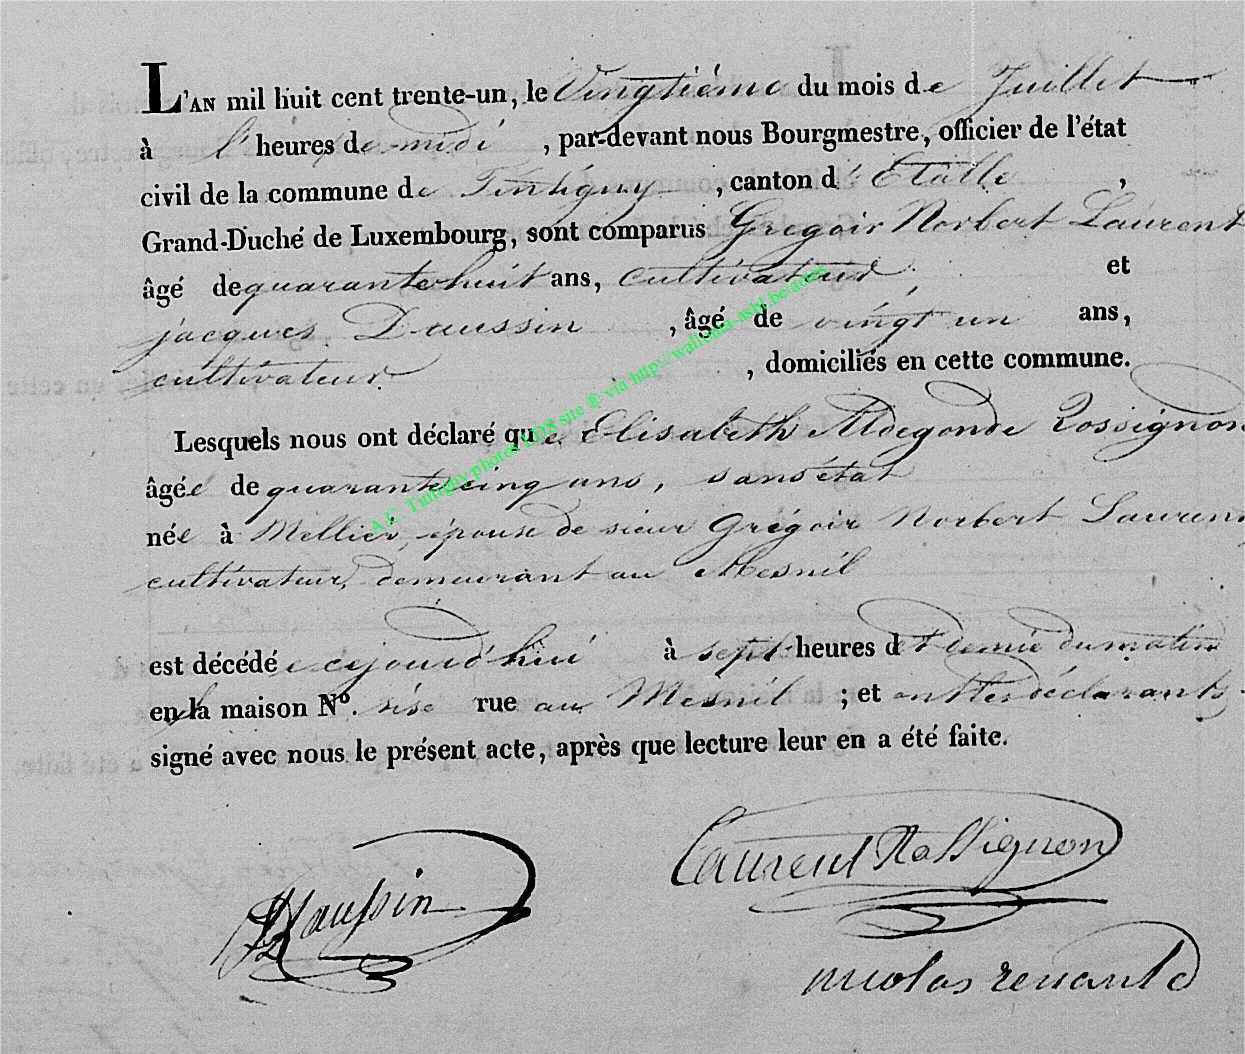 L'AN mil huit cent trente-un, le Vingtiéme du mois de Juillet
à l' heures de midi, par-devant nous Bourgmestre, officier de l'état
civil de la commune de Tintigny, canton d'Etalle,
Grand-Duché de Luxembourg, sont comparus Gregoir Norbert Laurent
âgé de quarantehuit ans, cultivateur et
jacques Daussin, âgé de vingt un ans,
cultivateur, domiciliés en cette commune.
Lesquels nous ont déclaré que Elisabeth Aldegonde Rossignon
âgée de quarantecinq ans, sans état
née à Mellier, épouse de sieur Grégoir Norbert Laurent
cultivateur, demeurant au Mesnil
est décédée cejourd'hui à sept heures et demie du matin
en la maison No. sise rue au Mesnil; et ont les déclarants
signé avec nous le présent acte, après que lecture leur en a été faite.
Laurent Rossignon
Daussin
nicolas renauld
A.C. Tintigny photos LDS site ® via http://wallonia-asbl.be/actes